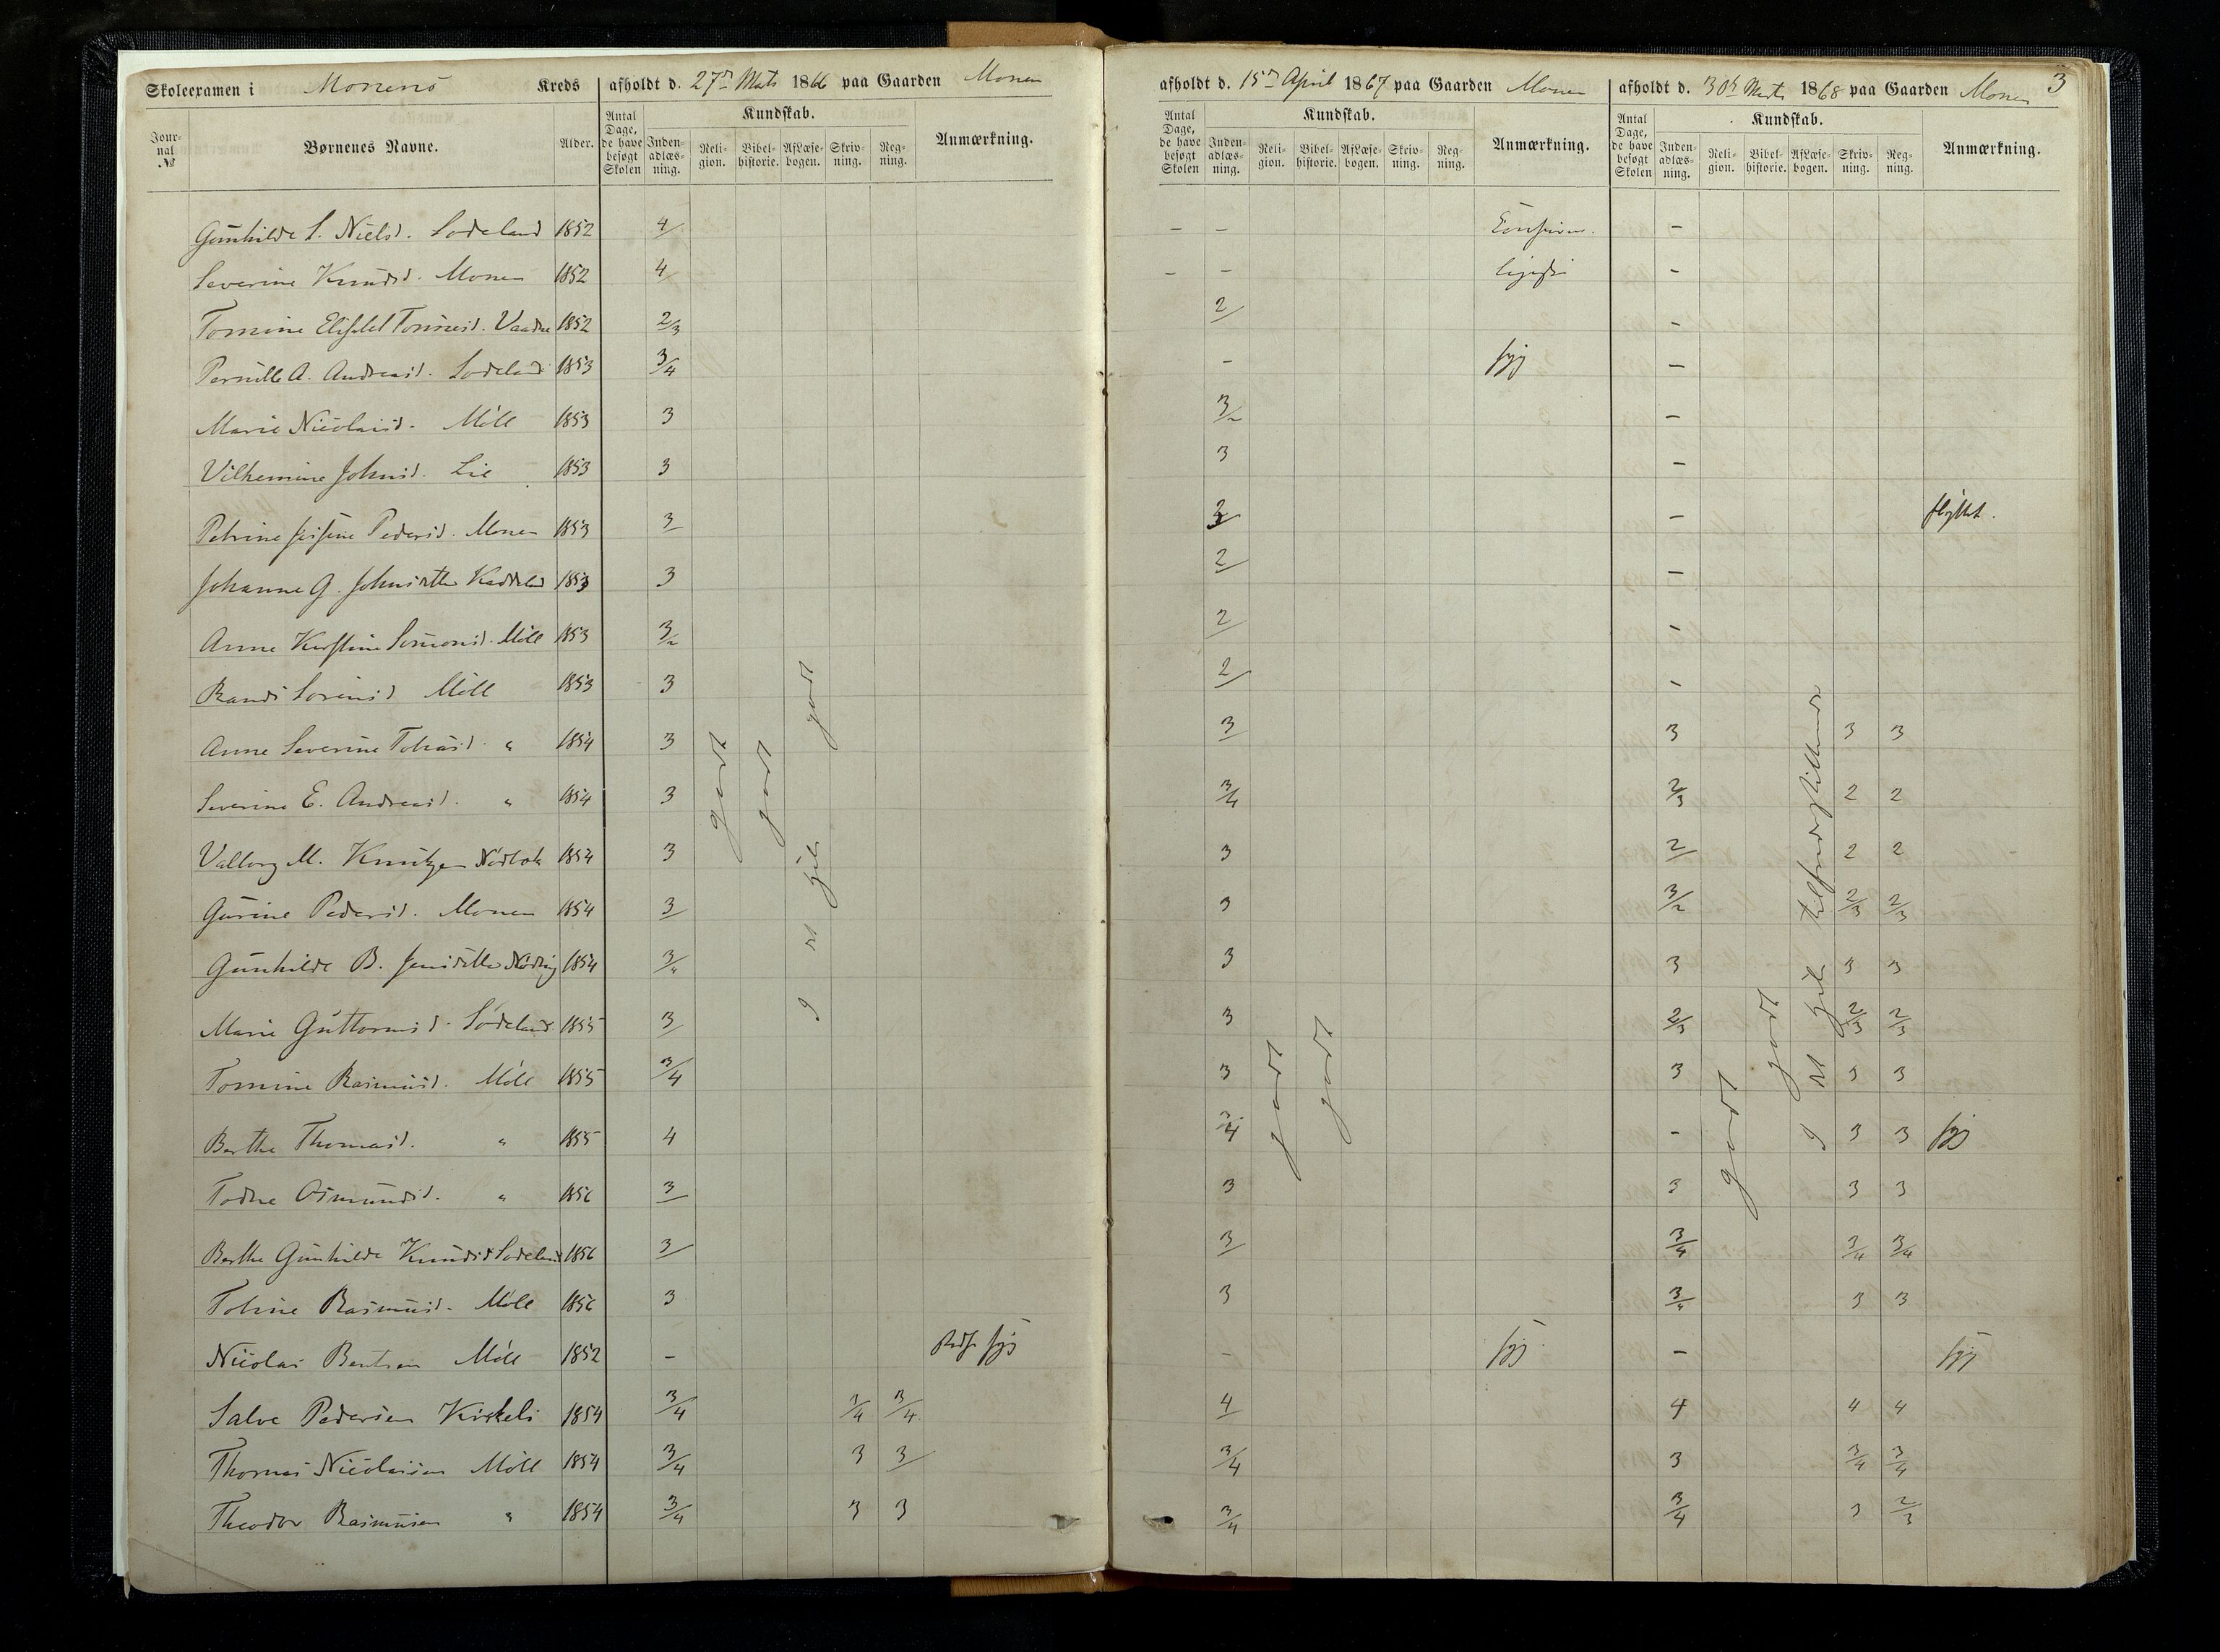 Skoleexamen i Monens Kreds afholdt d. 27de Mats 1866 paa Gaarden Monen
Jour-nal № Børnenes Navne. Alder. Antal Dage, de have besøgt Skolen Kundskab. Anmærkning.
Inden-adlæs-ning. Reli-gion. Bibel-historie. AfLæse-bogen. Skriv-ning. Reg-ning.
afholdt d. 15de April 1867 paa Gaarden Monen
Antal Dage, de have besøgt Skolen Kundskab. Anmærkning.
Inden-adlæs-ning. Reli-gion. Bibel-historie. AfLæse-bogen. Skriv-ning. Reg-ning.
afholdt d. 30te Marts 1868 paa Gaarden Monen 3
Antal Dage, de have besøgt Skolen Kundskab. Anmærkning.
Inden-adlæs-ning. Reli-gion. Bibel-historie. AfLæse-bogen. Skriv-ning. Reg-ning.
Gunhilde S. Nielsd. Lodeland 1852 4 – – –
Severine Knudsd. Monen 1852 4 – – –
Tomine 1852 2/3 2 –
Pernille A. Andreasd. Lodeland 1853 3/4 – syg –
Marie Nicolaisd. Möll 1853 3 3/2 –
Vilhemine Johnsd. Lie 1853 3 3 –
Petrine Pedersd. Monen 1853 3 3 – flyttet.
Johanne G. 1853 3 2 –
Anne Kirstine Simonsd. Möll 1853 3/2 2 –
Randi Sörensd. Möll 1853 3 2 –
Anne Severine Tobiasd. " 1854 3 3 3 3 3
Severine E. Andreasd. " 1854 3 3/4 2/3 2 2
Valborg M. Knutzen 1854 3 3 2 2 2
Gurine Pedersd. Monen 1854 3 3 3/2 2/3 2/3
Gunhilde B. 1854 3/4 3 3 3 3
Marie Guttormsd. Lödeland 1855 3 3 2/3 2/3 2/3
Tomine Rasmusd. Möll 1855 3/4 3 3 3 3
Berthe Thomasd. " 1855 4 3/4 – 3 3 syg
Todne Osmundsd. " 1856 3 3 3 3 3
Berthe Gunhilde Knudsd. Lodeland 1856 3 3 3/4 3/4 3/4
Toline Rasmusd. Möll 1856 3 3 3/4 3 3
Nicolai Bentsen Möll 1852 – syg – syg – syg
Salve Pedersen Kirkeli 1854 3/4 3/4 3/4 4 4 4 4
Thomas Nicolaisen Möll 1854 3/4 3 3 3/4 3 3/4 3/4
Theodor Rasmusen " 1854 3/4 3 3 3/4 3/4 3 2/3
godt
godt
godt
godt
godt
godt
godt
tilfredsstillende